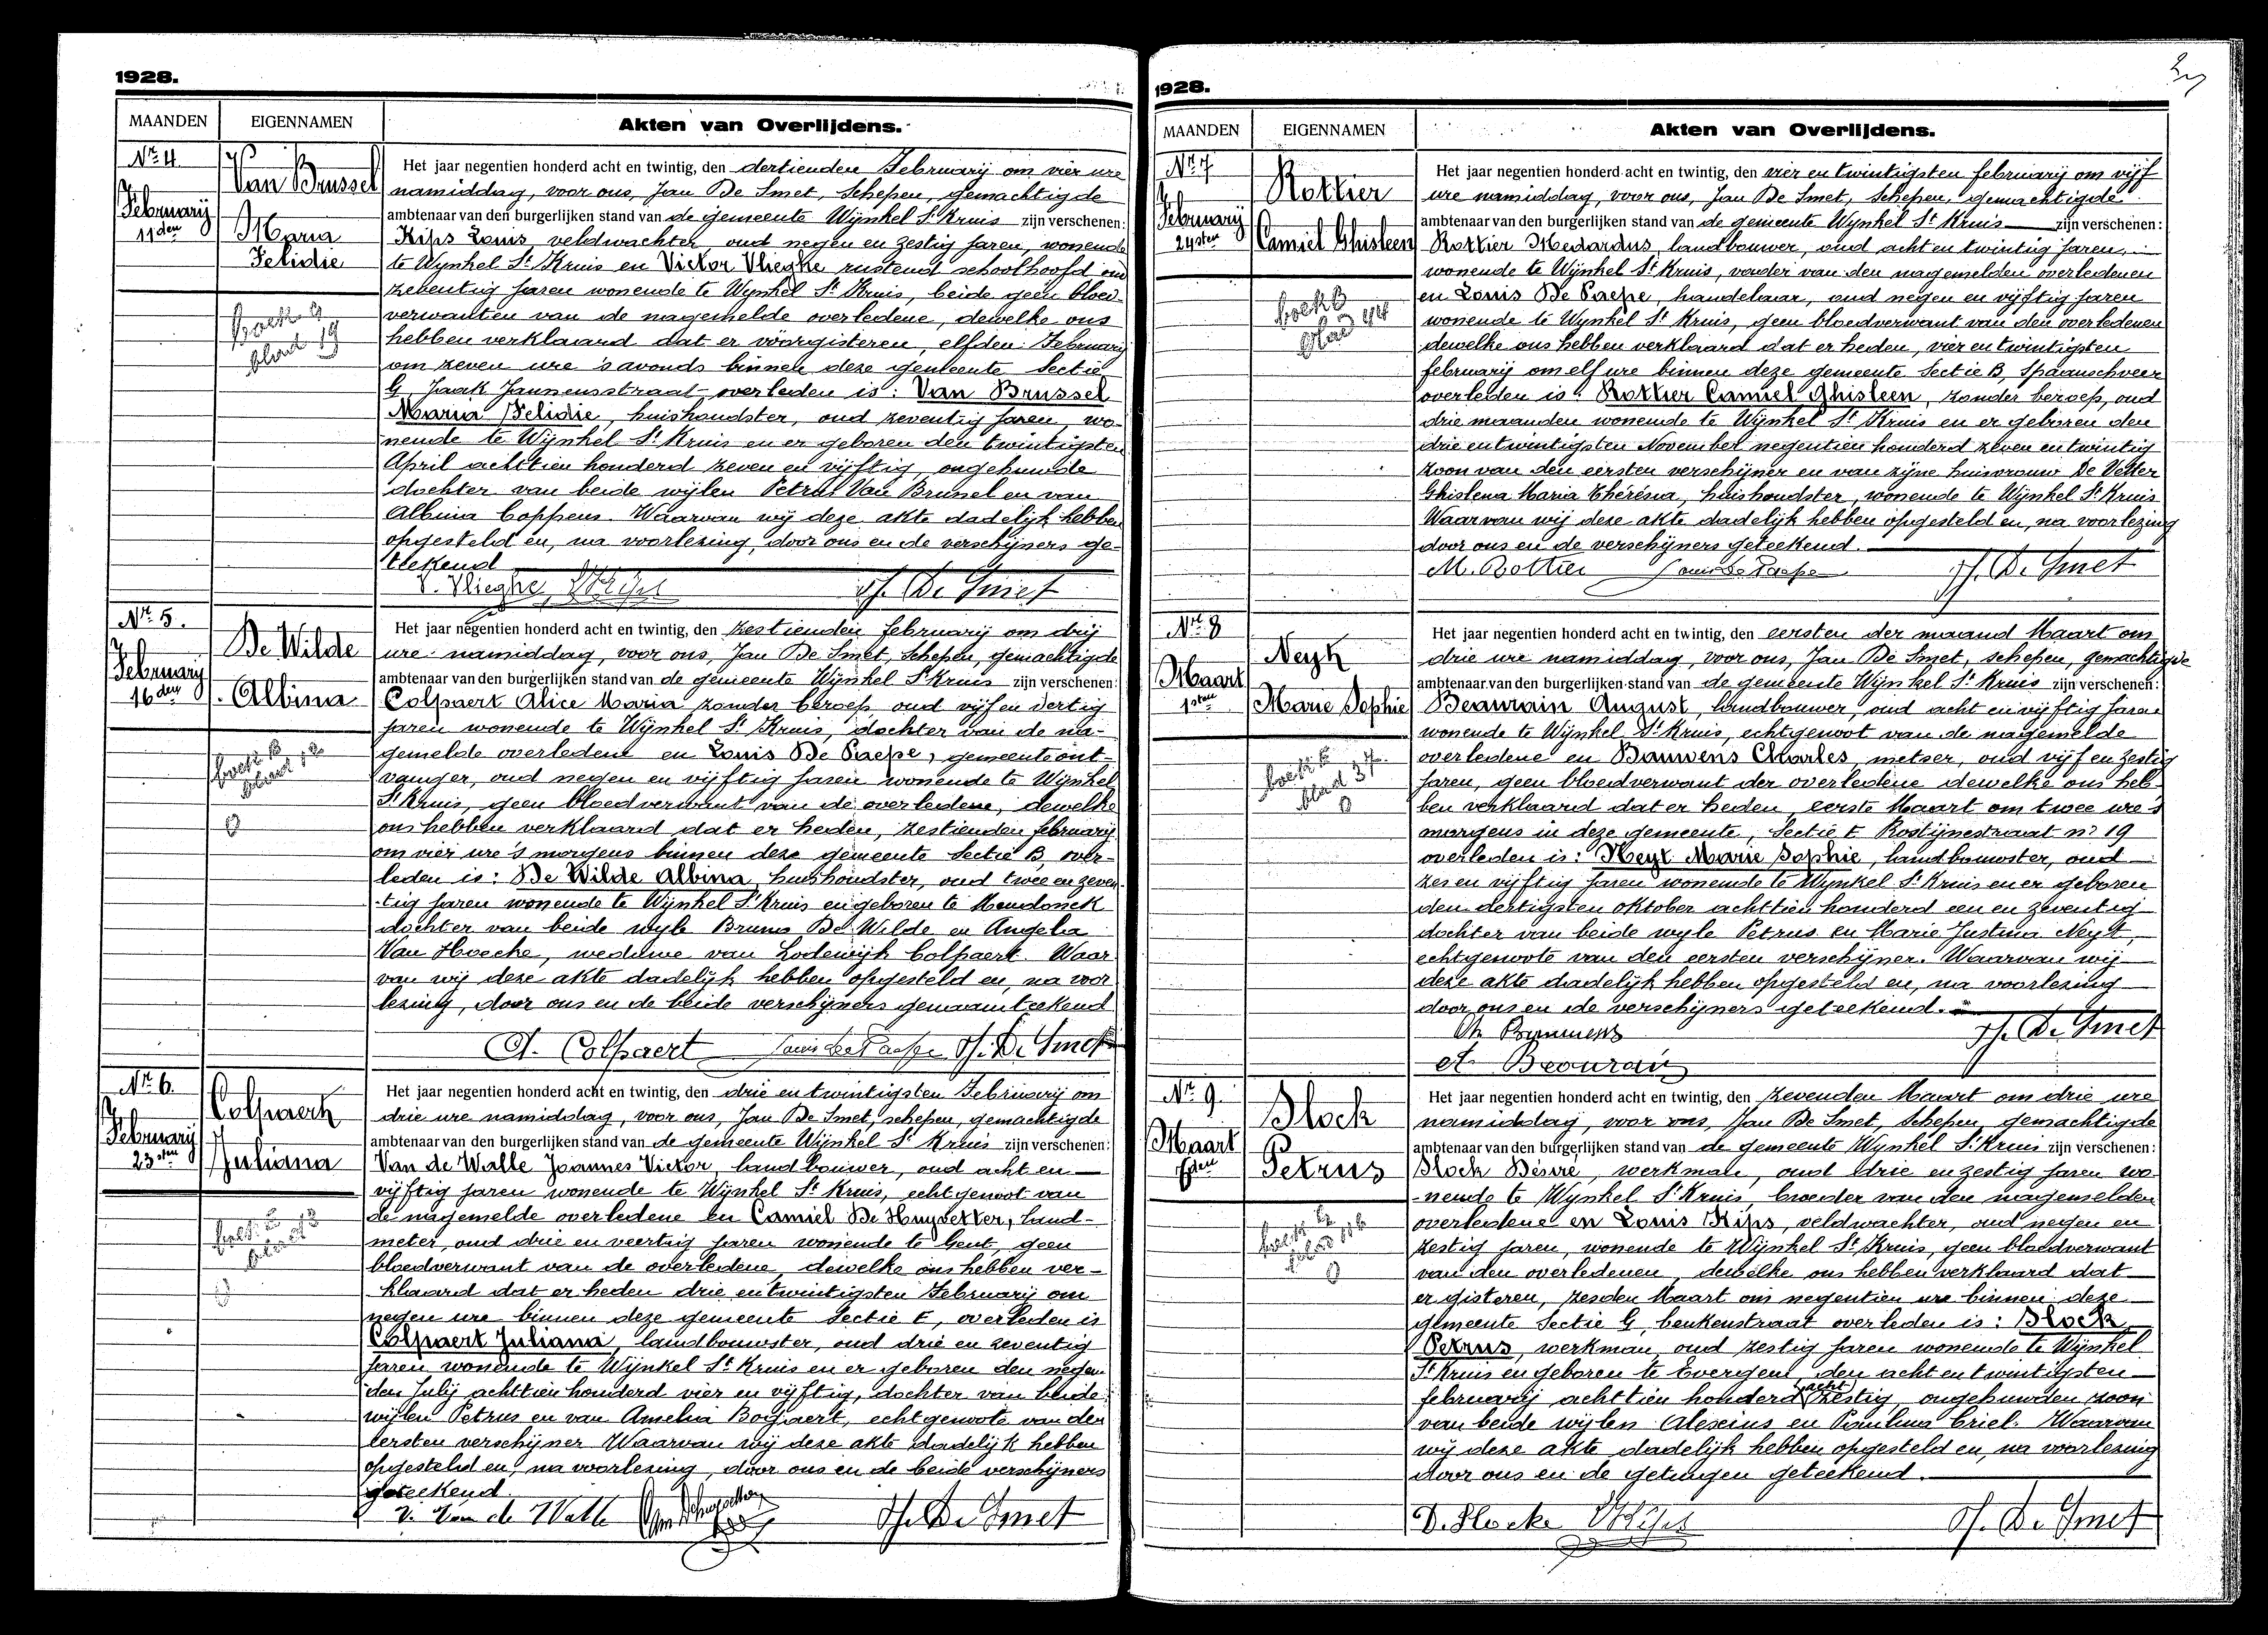 1928.
MAANDEN EIGENNAMEN Akten van Overlijdens.
Nr. 4
Van Brussel
February
11den
Maria
Felidie
Het jaar negentien honderd acht en twintig, den dertienden February om vier ure
namiddag, voor ons, Jan De Smet, Schepen, gemachtigde
ambtenaar van den burgerlijken stand van de gemeente Wijnkel St Kruis zijn verschenen:
Kips Louis, veldwachter, oud negen en zestig jaren, wonende
te Wynkel St Kruis en Victor Vlieghe rustend schoolhoofd oud
zeventig jaren wonende te Wynkel St Kruis, beide geen bloed-
verwanten van de nagemelde overledene, dewelke ons
hebben verklaard dat er voorgisteren, elfden February
om zeven ure 's avonds binnen deze gemeente Sectie
G Jaak Janneusstraat overleden is: Van Brussel
Maria Felidie, huishoudster, oud zeventig jaren, wo-
nende te Wijnkel St Kruis en er geboren den twintigsten
April achttien honderd zeven en vijftig, ongehuwde
dochter van beide wijlen Petrus Van Brussel en van
Albina Coppens. Waarvan wij deze akte dadelijk hebben
opgesteld en, na voorlezing, door ons en de verschijners ge-
teekend
V. Vlieghe, L. Kips Jh. De Smet
Nr. 5.
De Wilde
February
16den
Albina
Het jaar negentien honderd acht en twintig, den zestienden february om drij
ure namiddag, voor ons, Jan De Smet, Schepen, gemachtigde
ambtenaar van den burgerlijken stand van de gemeente Wijnkel St Kruis zijn verschenen:
Colpaert Alice Maria zonder beroep oud vijf en dertig
jaren wonende te Wijnkel St Kruis, dochter van de na-
gemelde overledene en Louis De Paepe, gemeenteont-
vanger, oud negen en vijftig jaren wonende te Wijnkel
St Kruis, geen bloedverwant van de overledene, dewelke
ons hebben verklaard dat er heden, zestienden february
om vier ure 's morgens binnen deze gemeente Sectie B, over-
leden is: De Wilde Albina, huishoudster, oud twee en zeven-
tig jaren wonende te Wijnkel St Kruis en geboren te Mendonck
dochter van beide wyle Bruno De Wilde en Angelia
Van Hoecke, weduwe van Lodewijk Colpaert. Waar-
van wij deze akte dadelijk hebben opgesteld en, na voor
lezing, door ons en de beide verschijners genaamteekend
A. Colpaert Louis De Paepe Jh. De Smet
Nr. 6.
Colpaert
February
23sten
Juliana
Het jaar negentien honderd acht en twintig, den drie en twintigsten February om
drie ure namiddag, voor ons, Jan De Smet, schepen, gemachtigde
ambtenaar van den burgerlijken stand van de gemeente Wijnkel St Kruis zijn verschenen:
Van de Walle Joannes Victor, landbouwer, oud acht en
vijftig jaren wonende te Wijnkel St Kruis, echtgenoot van
de nagemelde overledene en Camiel De Huysetter, land-
meter, oud drie en veertig jaren wonende te Gent, geen
bloedverwant van de overledene, dewelke ons hebben ver-
klaard dat er heden drie en twintigsten February om
negen ure binnen deze gemeente Sectie E, overleden is
Colpaert Juliana, landbouwster, oud drie en zeventig
jaren wonende te Wijnkel St Kruis en er geboren den negen
den July achttien honderd vier en vijftig, dochter van beide
wijlen Petrus en van Amelia Bogaert, echtgenoote van den
eersten verschijner Waarvan wij deze akte dadelijk hebben
opgesteld en, na voorlezing, door ons en de beide verschijners
geteekend
V. Van de Walle Jh. De Smet
1928.
MAANDEN EIGENNAMEN Akten van Overlijdens.
Nr. 7
Rottier
February
24sten
Camiel Ghisleen
Het jaar negentien honderd acht en twintig, den vier en twintigsten february om vijf
ure namiddag, voor ons, Jan De Smet, Schepen, gemachtigde
ambtenaar van den burgerlijken stand van de gemeente Wijnkel St Kruis zijn verschenen:
Rottier Medardus, landbouwer, oud acht en twintig jaren,
wonende te Wijnkel St Kruis, vader van den nagemelden overledenen
en Louis De Paepe, handelaar, oud negen en vijftig jaren
wonende te Wynkel St Kruis, geen bloedverwant van den overledenen
dewelke ons hebben verklaard dat er heden, vier en twintigsten
february om elf ure binnen deze gemeente Sectie B, Spaanschveer
overleden is: Rottier Camiel Ghisleen, zonder beroep, oud
drie maanden wonende te Wijnkel St Kruis en er geboren den
drie en twintigsten November negentien honderd zeven en twintig
zoon van den eersten verschijner en van zijne huisvrouw De Vetter
Ghislena Maria Thérésia, huishoudster, wonende te Wijnkel St Kruis
Waarvan wij deze akte dadelijk hebben opgesteld en, na voorlezing
door ons en de verschijners geteekend.
M. Rottier Louis De Paepe Jh. De Smet
Nr. 8
Neyt
Maart
1sten
Marie Sophie
Het jaar negentien honderd acht en twintig, den eersten der maand Maart om
drie ure namiddag, voor ons, Jan De Smet, schepen, gemachtigde
ambtenaar van den burgerlijken stand van de gemeente Wijnkel St Kruis zijn verschenen:
Beaurain August, landbouwer, oud acht en vijftig jaren
wonende te Wijnkel St Kruis, echtgenoot van de nagemelde
overledene en Bauwens Charles, metser, oud vijf en zestig
jaren, geen bloedverwant der overledene dewelke ons heb-
ben verklaard dat er heden, eerste Maart om twee ure 's
morgens in deze gemeente, Sectie E Rostijnestraat nr 19
overleden is: Neyt Marie Sophie, landbouwster, oud
zes en vijftig jaren wonende te Wynkel St Kruis en er geboren
den dertigsten oktober achttien honderd een en zeventig
dochter van beide wyle Petrus en Marie Justina Neyt,
echtgenoote van den eersten verschijner. Waarvan wij
deze akte dadelijk hebben opgesteld en, na voorlezing
door ons en de verschijners geteekend.
Ch. Bauwens Jh. De Smet
A. Beaurain
Nr. 9.
Block
Maart
7den
Petrus
Het jaar negentien honderd acht en twintig, den zevenden Maart om drie ure
namiddag, voor ons, Jan De Smet, Schepen, gemachtigde
ambtenaar van den burgerlijken stand van de gemeente Wynkel St Kruis zijn verschenen:
Block Désiré, werkman, oud drie en zestig jaren wo-
nende te Wynkel St Kruis, broeder van den nagemelden
overledene en Louis Kips, veldwachter, oud negen en
zestig jaren, wonende te Wijnkel St Kruis, geen bloedverwant
van den overledenen, dewelke ons hebben verklaard dat
er gisteren, zesden Maart om negentien ure binnen deze
gemeente Sectie G, beukenstraat overleden is: Block
Petrus, werkman, oud zestig jaren wonende te Wijnkel
St Kruis en geboren te Evergem, den acht en twintigsten
february achttien honderd acht zestig, ongehuwden zoon
van beide wijlen Alexius en Paulina Criel. Waarvan
wij deze akte dadelijk hebben opgesteld en, na voorlezing
door ons en de getuigen geteekend.
D. Blocke L. Kips Jh. De Smet